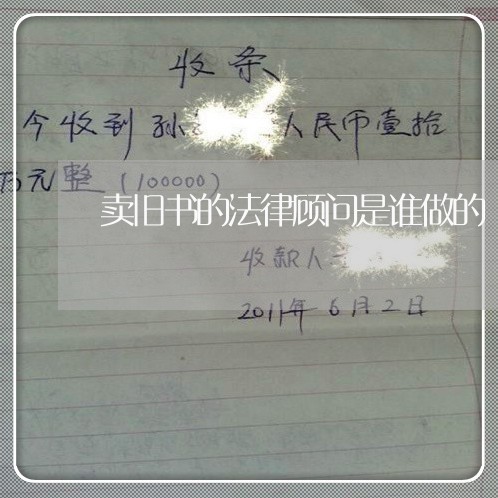 收条
今收到孙 人民币壹拾
万元整(100000)
卖旧书的法律顾问是谁做的
收款人
2011年6月2日